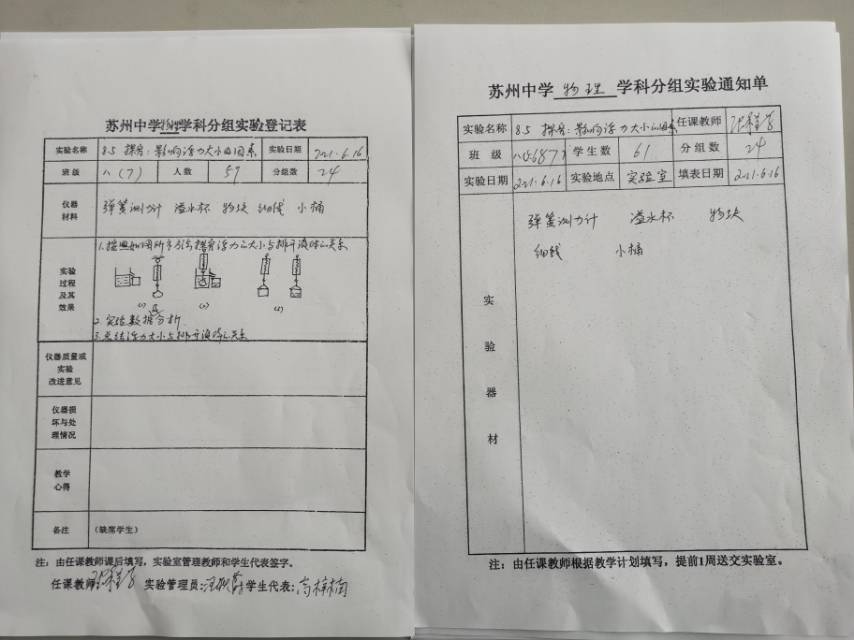 苏州中学物理学科分组实验登记表
实验名称 8.5 探究：影响浮力大小的因素 实验日期 2021.6.16
班 级 八（7） 人 数 59 分组数 24
仪器材料 弹簧测力计 溢水杯 物块 细线 小桶
实验过程及其效果
1. 按照如图所示方法探究浮力之大小与排开液体之关系
(1) (2)
2. 实验数据分析
3. 总结浮力大小与排开液体之关系
仪器质量或实验改进意见
仪器损坏与处理情况
教学心得
备注 （缺席学生）
注：由任课教师课后填写，实验室管理教师和学生代表签字。
任课教师： 实验管理员： 学生代表：
苏州中学 物理 学科分组实验通知单
实验名称 8.5 探究：影响浮力大小的因素 任课教师
班 级 学生数 61 分组数 24
实验日期 2021.6.16 实验地点 实验室 填表日期 2021.6.16
实验器材
弹簧测力计 溢水杯 物块
细线 小桶
注：由任课教师根据教学计划填写，提前1周送交实验室。